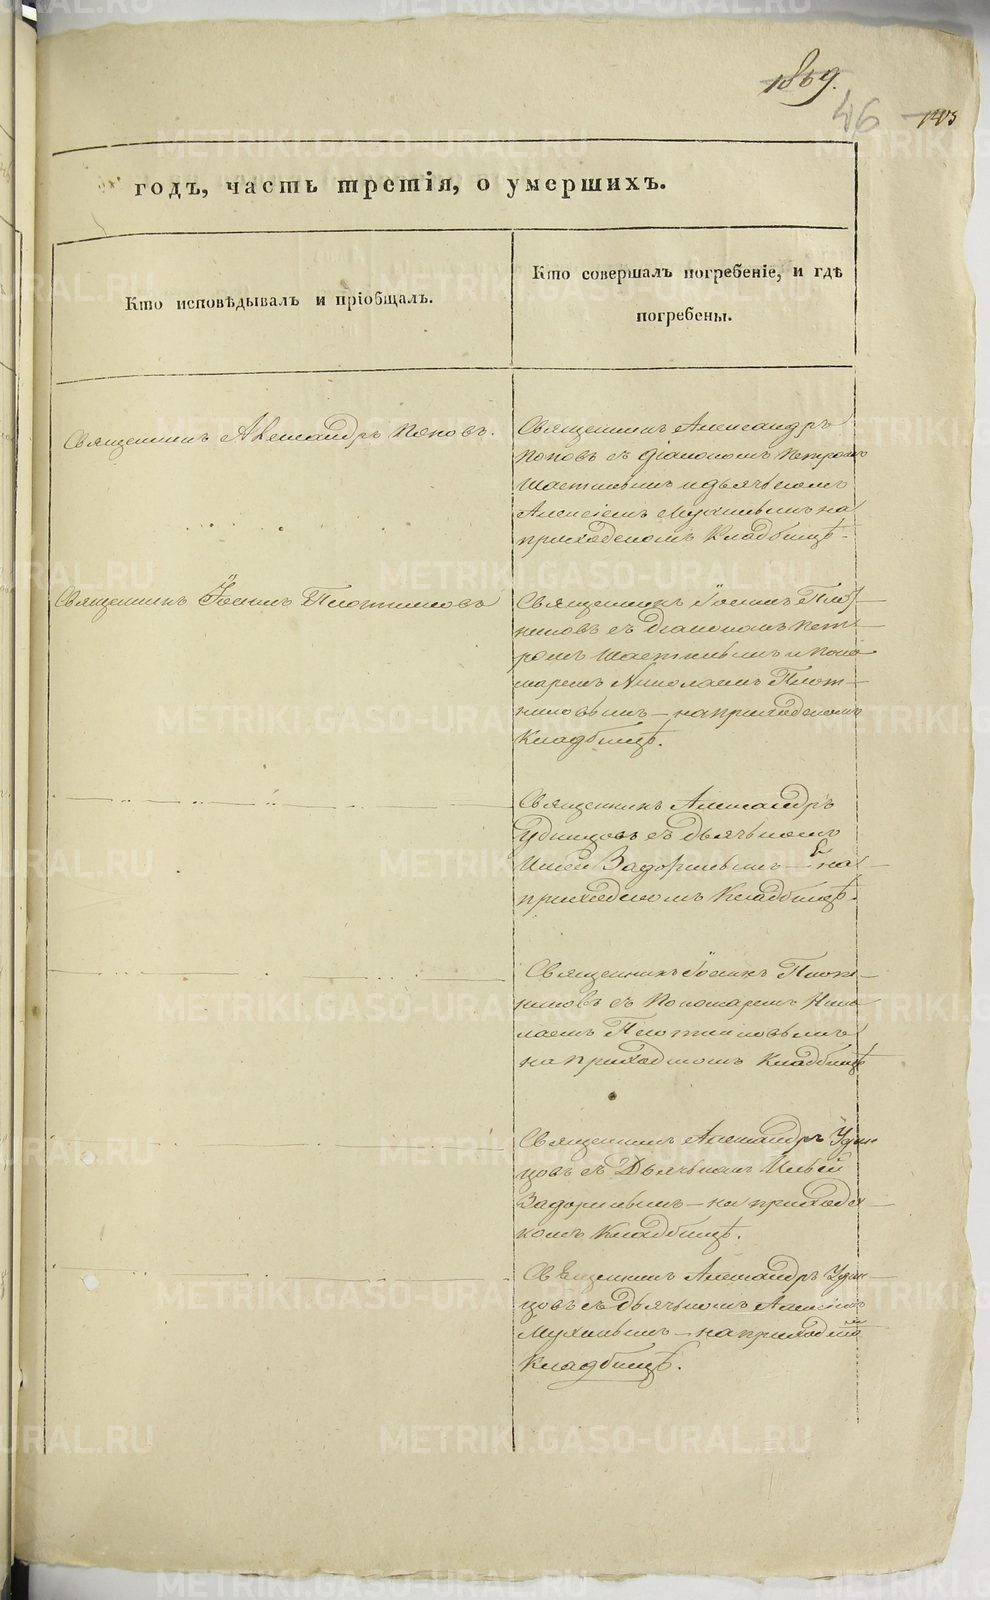 46
годъ, часть третія, о умершихъ.
Кто исповѣдывалъ и пріобщалъ.
Кто совершалъ погребеніе, и гдѣ
погребены.
Священникъ Александръ Поповъ.
Священникъ Александръ
Поповъ съ діакономъ Петромъ
и дьячкомъ
Алексіемъ на
приходскомъ Кладбищѣ.
Священникъ Іоаннъ Плотниковъ
Священникъ Іоаннъ Плот-
никовъ съ діакономъ Пет-
ромъ и Поно-
маремъ Николаемъ Плот-
никовымъ - на приходскомъ
Кладбищѣ.
Священникъ Александръ
Удинцовъ съ дьячкомъ
на
приходскомъ Кладбищѣ.
Священникъ Іоаннъ Плот-
никовъ съ Пономаремъ Нико-
лаемъ Плотниковымъ
на приходскомъ Кладбищѣ
Священникъ Александръ Удин-
цовъ съ Дьячкомъ Ильей
на приходс-
комъ Кладбищѣ.
Священникъ Александръ Удин-
цовъ съ дьячкомъ Алексіемъ
на приходскомъ
Кладбищѣ.
METRIKI.GASO-URAL.RU